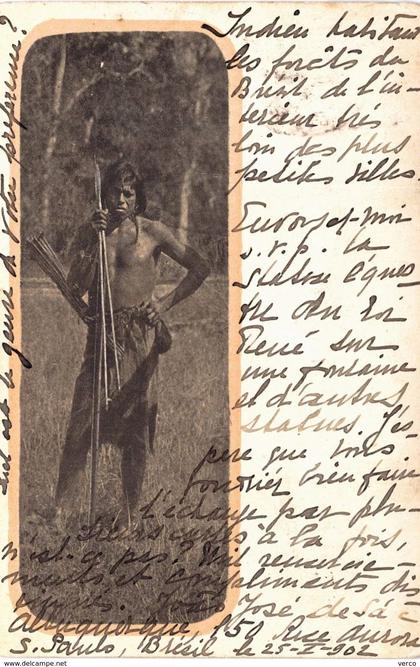 Indien habitant
les forêts du
Brésil de l'in-
terieur très
loin des plus
petites villes.
Envoyez-moi
s.v.p. la
statue éques-
tre du roi
René sur
une fontaine
et d'autres
statues. J'es-
père que vous
voudriez bien faire
l'échange par plu-
sieurs cartes à la fois,
n'est-ce pas? Mil remercie-
ments et compliments des
João José de Sá
Albuquerque, 50 Rue
S. Paulo, Brésil 25-X-902
est le genre de votre préférence?
verco